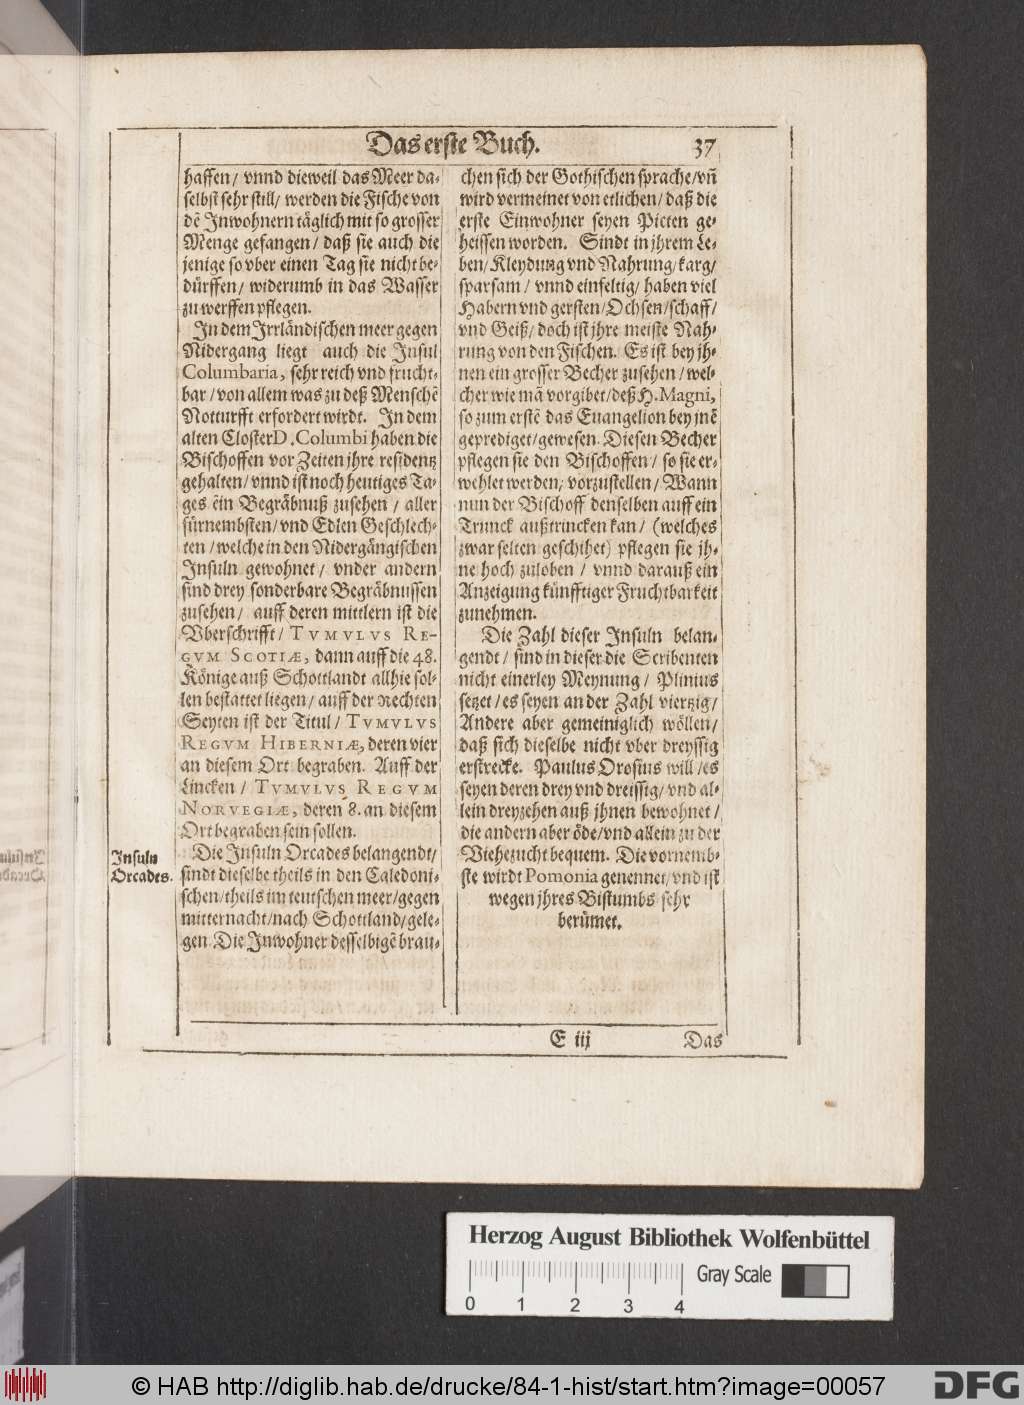 Das erste Buch. 37
haffen / vnnd dieweil das Meer da-
selbst sehr still / werden die Fische von
dẽ Inwohnern täglich mit so grosser
Menge gefangen / daß sie auch die
jenige so vber einen Tag sie nicht be-
dürffen / widerumb in das Wasser
zu werffen pflegen.
In dem Irrländischen meer gegen
Nidergang liegt auch die Insul
Columbaria, sehr reich vnd frucht-
bar / von allem was zu deß Menschẽ
Notturfft erfordert wirdt. In dem
alten Closter D. Columbi haben die
Bischoffen vor Zeiten jhre residentz
gehalten / vnnd ist noch heutiges Ta-
ges ein Begräbnuß zusehen / aller
fürnembsten / vnd Edlen Geschlech-
ten / welche in den Nidergängischen
Insuln gewohnet / vnder andern
sind drey sonderbare Begräbnussen
zusehen / auff deren mittlern ist die
Vberschrifft / TVMVLVS RE-
GVM SCOTIÆ, dann auff die 48.
Könige auß Schottlandt allhie sol-
len bestattet liegen / auff der Rechten
Seyten ist der Titul / TVMVLVS
REGVM HIBERNIÆ, deren vier
an diesem Ort begraben. Auff der
Lincken / TVMVLVS REGVM
NORVEGIÆ, deren 8. an diesem
Ort begraben sein sollen.
Insuln
Orcades.
Die Insuln Orcades belangendt /
sindt dieselbe theils in den Caledoni-
schen / theils im teutschen meer / gegen
mitternacht / nach Schottland / gele-
gen. Die Inwohner desselbigẽ brau-
chen sich der Gothischen sprache / vñ
wird vermeinet von etlichen / daß die
erste Einwohner seyen Picten ge-
heissen worden. Sindt in jhrem Le-
ben / Kleydung vnd Nahrung / karg /
sparsam / vnnd einfeltig / haben viel
Habern vnd gersten / Ochsen / schaff /
vnd Geiß / doch ist jhre meiste Nah-
rung von den Fischen. Es ist bey jh-
nen ein grosser Becher zusehen / wel-
cher wie mã vorgibet / deß H. Magni,
so zum erstẽ das Euangelion bey jnẽ
geprediget / gewesen. Diesen Becher
pflegen sie den Bischoffen / so sie er-
wehlet werden / vorzustellen / Wann
nun der Bischoff denselben auff ein
Trunck außtrincken kan / (welches
zwar selten geschihet) pflegen sie jh-
ne hoch zuloben / vnnd darauß ein
Anzeigung künfftiger Fruchtbarkeit
zunehmen.
Die Zahl dieser Insuln belan-
gendt / sind in dieser die Scribenten
nicht einerley Meynung / Plinius
setzet / es seyen an der Zahl viertzig /
Andere aber gemeiniglich wöllen /
daß sich dieselbe nicht vber dreyssig
erstrecke. Paulus Orosius will / es
seyen deren drey vnd dreissig / vnd al-
lein dreyzehen auß jhnen bewohnet /
die andern aber öde / vnd allein zu der
Viehezucht bequem. Die vornemb-
ste wirdt Pomonia genennet / vnd ist
wegen jhres Bistumbs sehr
berümet.
E iij Das
Herzog August Bibliothek Wolfenbüttel
Gray Scale
0 1 2 3 4
© HAB http://diglib.hab.de/drucke/84-1-hist/start.htm?image=00057
DFG